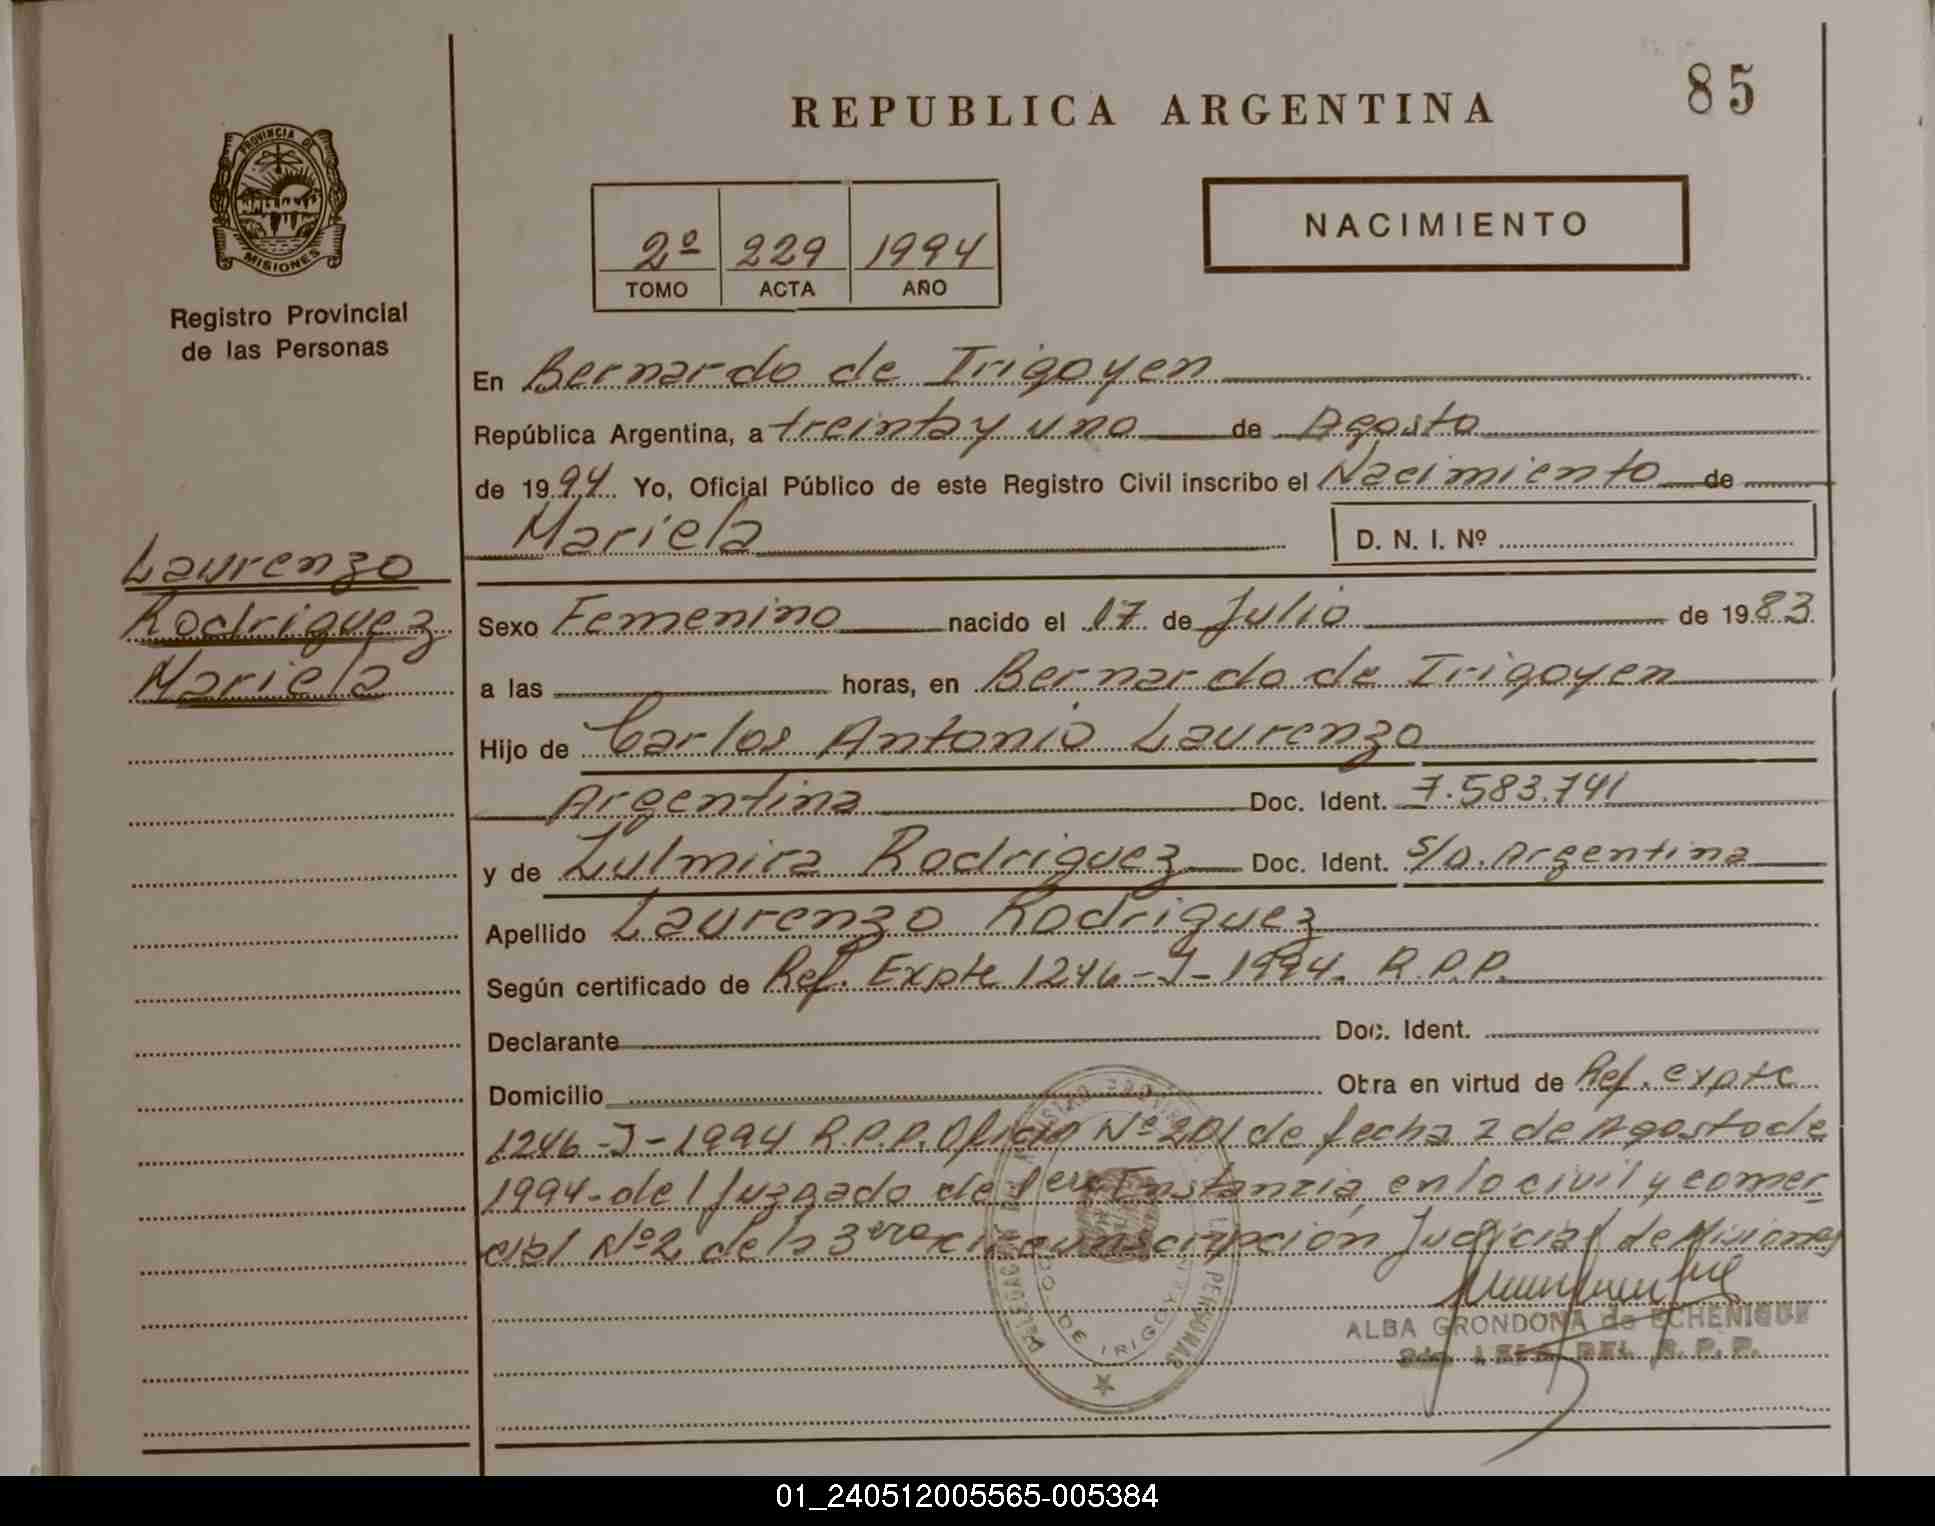 REPUBLICA ARGENTINA
85
PROVINCIA DE
MISIONES
Registro Provincial
de las Personas
2º 229 1994
TOMO ACTA AÑO
NACIMIENTO
En Bernardo de Irigoyen
República Argentina, a treinta y uno de Agosto
de 1994 Yo, Oficial Público de este Registro Civil inscribo el Nacimiento de
Mariela D. N. I. Nº
Laurenzo
Rodriguez
Mariela
Sexo Femenino nacido el 17 de Julio de 1983
a las horas, en Bernardo de Irigoyen
Hijo de Carlos Antonio Laurenzo
Argentina Doc. Ident. 7.583.741
y de Zulmira Rodriguez Doc. Ident. S/D. Argentina
Apellido Laurenzo Rodriguez
Según certificado de Ref. Expte 1246-J-1994. R.P.P.
Declarante Doc. Ident.
Domicilio Obra en virtud de Ref. expte
1246-J-1994 R.P.P. Oficio Nº 201 de fecha 2 de Agosto de
1994-del Juzgado de 1era Instancia, en lo civil y comer
cial Nº2 de la 3era circunscripción Judicial de Misiones
ALBA GRONDONA de ECHENIQUE
DEL R. P. P.
DE IRIGOYEN
PERSONAS
01_240512005565-005384